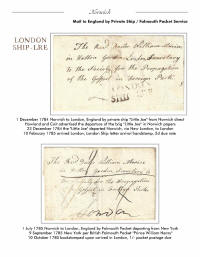 Norwich
Mail to England by Private Ship / Falmouth Packet Service
LONDON
SHIP-LRE
The Revd Doctor William Morice
in Hatton Garden London Secretary
to the Society for the Propagation
of the Gospel in Foreign Parts
1 December 1784 Norwich to London, England by private ship "Little Joe" from Norwich direct
Rowland and Coit advertised the departure of the brig "Little Joe" in Norwich papers
23 December 1784 the "Little Joe" departed Norwich, via New London, to London
10 February 1785 arrived London; London Ship letter arrival handstamp, 5d due rate
The Revd Doctor William Morice
in Hatton Garden Secretary to
the Propagation
London
1 July 1785 Norwich to London, England by Falmouth Packet departing from New York
9 September 1785 New York per British Falmouth Packet "Prince William Henry"
10 October 1785 backstamped upon arrival in London, 1/- packet postage due